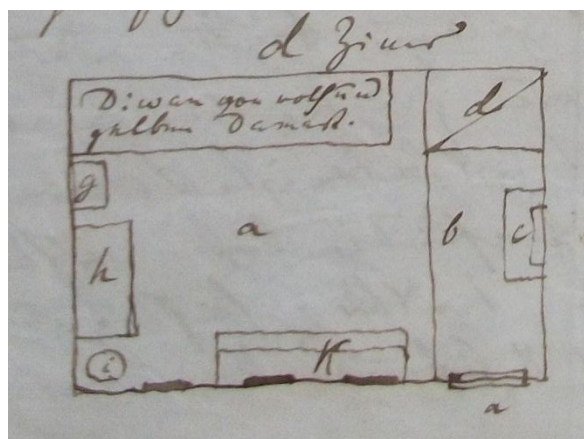 d Zimer
Diwan von roth und
gelbem Damast.
d
g
a
b
c
h
K
i
a